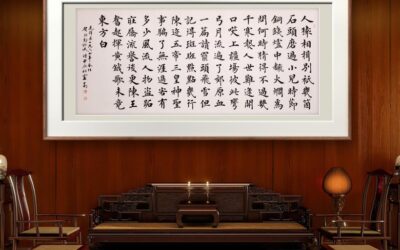 人猿相揖别祇幾箇
石頭磨過小兒時節
銅鐵爐中翻火爓爲
問何時猜得不過幾
千寒熱人世難逢開
口笑上疆場彼此彎
弓月流遍了郊原血
一篇讀罷頭飛雪但
記得斑斑點點幾行
陳迹五帝三皇神聖
事騙了無涯過客有
多少風流人物盜跖
莊蹻流譽後更陳王
奮起揮黃鉞歌未竟
東方白